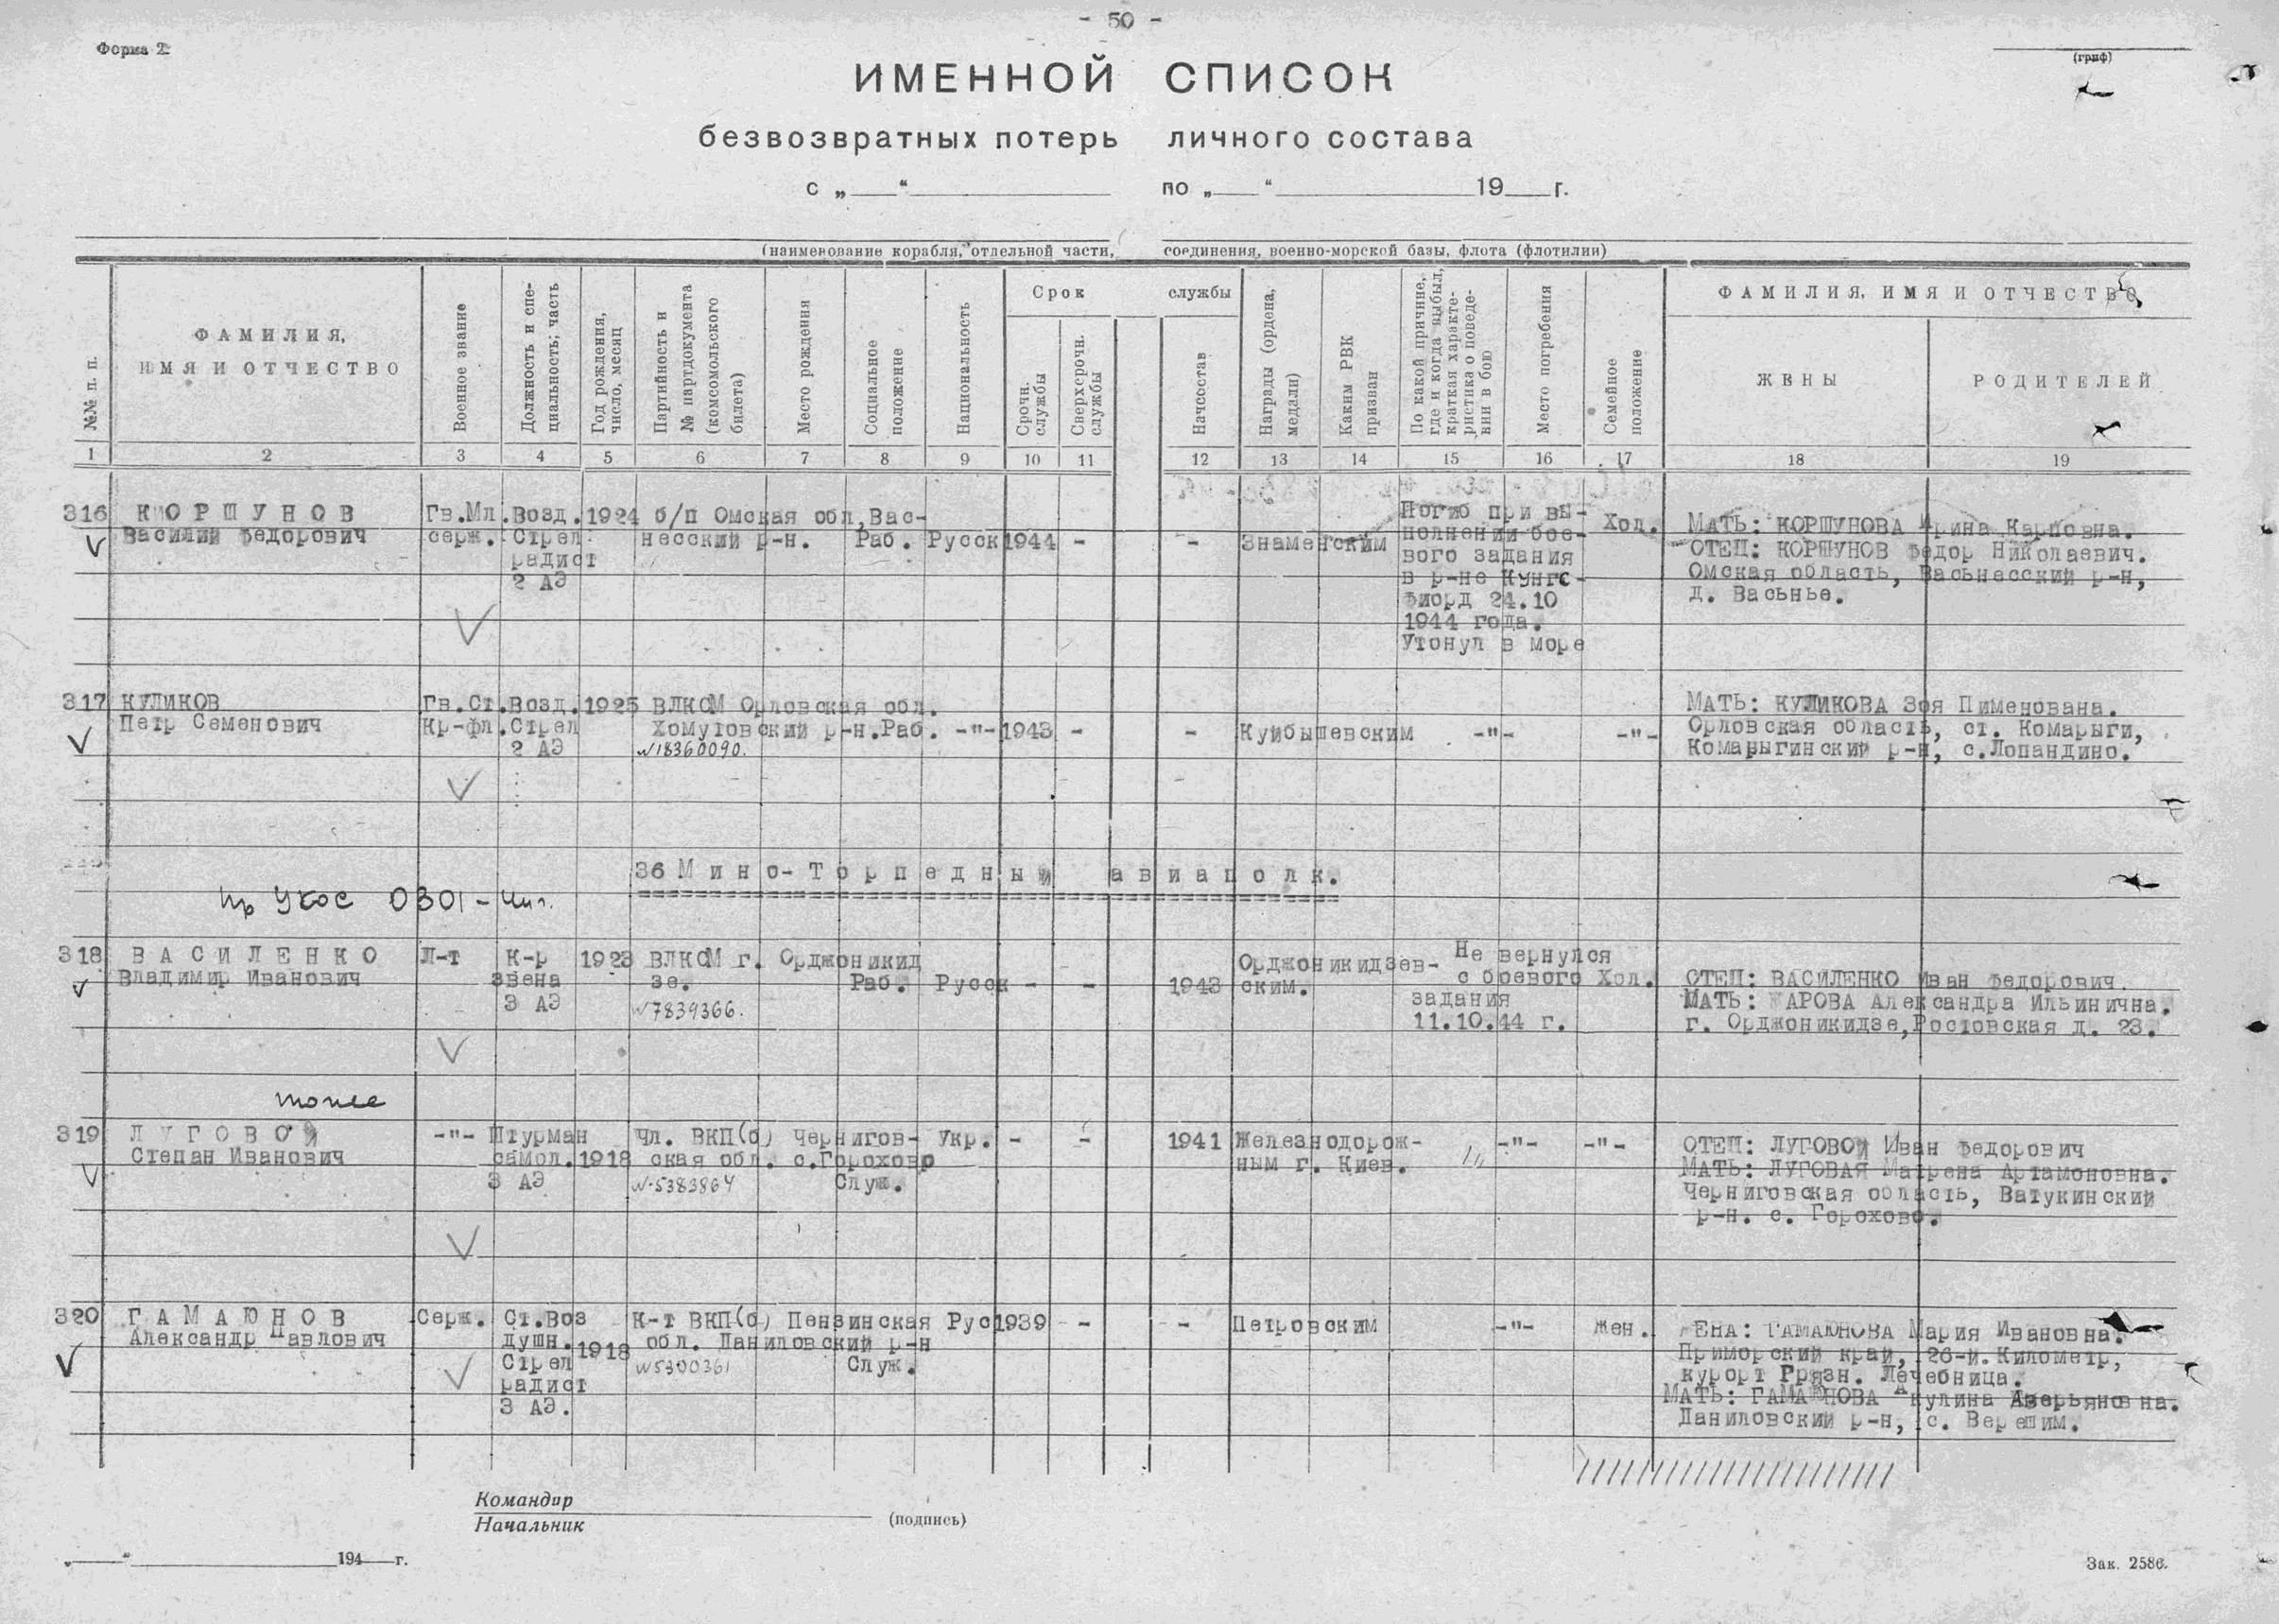 - 50 -
Форма 2
(гриф)
ИМЕННОЙ СПИСОК
безвозвратных потерь личного состава
с „ “ по „ “ 19 г.
(наименование корабля, отдельной части, соединения, военно-морской базы, флота (флотилии)
№№ п. п.
ФАМИЛИЯ,
ИМЯ И ОТЧЕСТВО
Военное звание
Должность и спе-
циальность; часть
Год рождения,
число, месяц
Партийность и
№ партдокумента
(комсомольского
билета)
Место рождения
Социальное
положение
Национальность
Срок службы
Срочн.
службы
Сверхсрочн.
службы
Начсостав
Награды (ордена,
медали)
Каким РВК
призван
По какой причине,
где и когда выбыл,
краткая характе-
ристика о поведе-
нии в бою
Место погребения
Семейное
положение
ФАМИЛИЯ, ИМЯ И ОТЧЕСТВО
ЖЕНЫ
РОДИТЕЛЕЙ
1 2 3 4 5 6 7 8 9 10 11 12 13 14 15 16 17 18 19
316 КОРШУНОВ
Василий Федорович
Гв.Мл.
серж.
Возд.
Стрел
радист
2 АЭ
1924 б/п Омская обл,Вас-
несский р-н. Раб. Русск 1944 - - Знаменским
Погиб при вы-
полнении бое-
вого задания
в р-не Кунгс-
фиорд 24.10
1944 года.
Утонул в море
Хол.
МАТЬ: КОРШУНОВА Ирина Карповна.
ОТЕЦ: КОРШУНОВ Федор Николаевич.
Омская область, Васьнесский р-н,
д. Васьнье.
317 КУЛИКОВ
Петр Семенович
Гв.Ст.
Кр-фл.
Возд.
Стрел
2 АЭ
1925 ВЛКСМ Орловская обл.
Хомутовский р-н.Раб. -"- 1943 - - Куйбышевским -"- -"-
№18360090.
МАТЬ: КУЛИКОВА Зоя Пименована.
Орловская область, ст. Комарыги,
Комарыгинский р-н, с.Лопандино.
36 Мино-Торпедный авиаполк.
0301
318 ВАСИЛЕНКО
Владимир Иванович
Л-т
К-р
звена
3 АЭ
1923 ВЛКСМ г. Орджоникид
зе. Раб. Русск - - 1943
№7839366.
Орджоникидзев-
ским.
Не вернулся
с боевого
задания
11.10.44 г.
Хол.
ОТЕЦ: ВАСИЛЕНКО Иван Федорович.
МАТЬ: ЖАРОВА Александра Ильинична.
г. Орджоникидзе,Ростовская д. 23.
тоже
319 ЛУГОВОЙ
Степан Иванович
-"-
Штурман
самол.
3 АЭ
1918
Чл. ВКП(б) Чернигов-
ская обл. с.Горохово
Служ.
№5383864
Укр. - - 1941 Железнодорож-
ным г. Киев.
-"- -"-
ОТЕЦ: ЛУГОВОЙ Иван Федорович
МАТЬ: ЛУГОВАЯ Матрена Артамоновна.
Черниговская область, Ватукинский
р-н. с. Горохово.
320 ГАМАЮНОВ
Александр Павлович
Серж.
Ст.Воз
душн.
Стрел
радист
3 АЭ.
1918
К-т ВКП(б) Пензинская Рус 1939 - - Петровским -"- Жен.
обл. Даниловский р-н
Служ.
№5300361
ЖЕНА: ГАМАЮНОВА Мария Ивановна.
Приморский край, 26-й.Километр,
курорт Грязн. Лечебница.
МАТЬ: ГАМАЮНОВА Акулина Аверьяновна.
Даниловский р-н, с. Верешим.
Командир
Начальник
(подпись)
„ “ 194 г.
Зак. 2586.